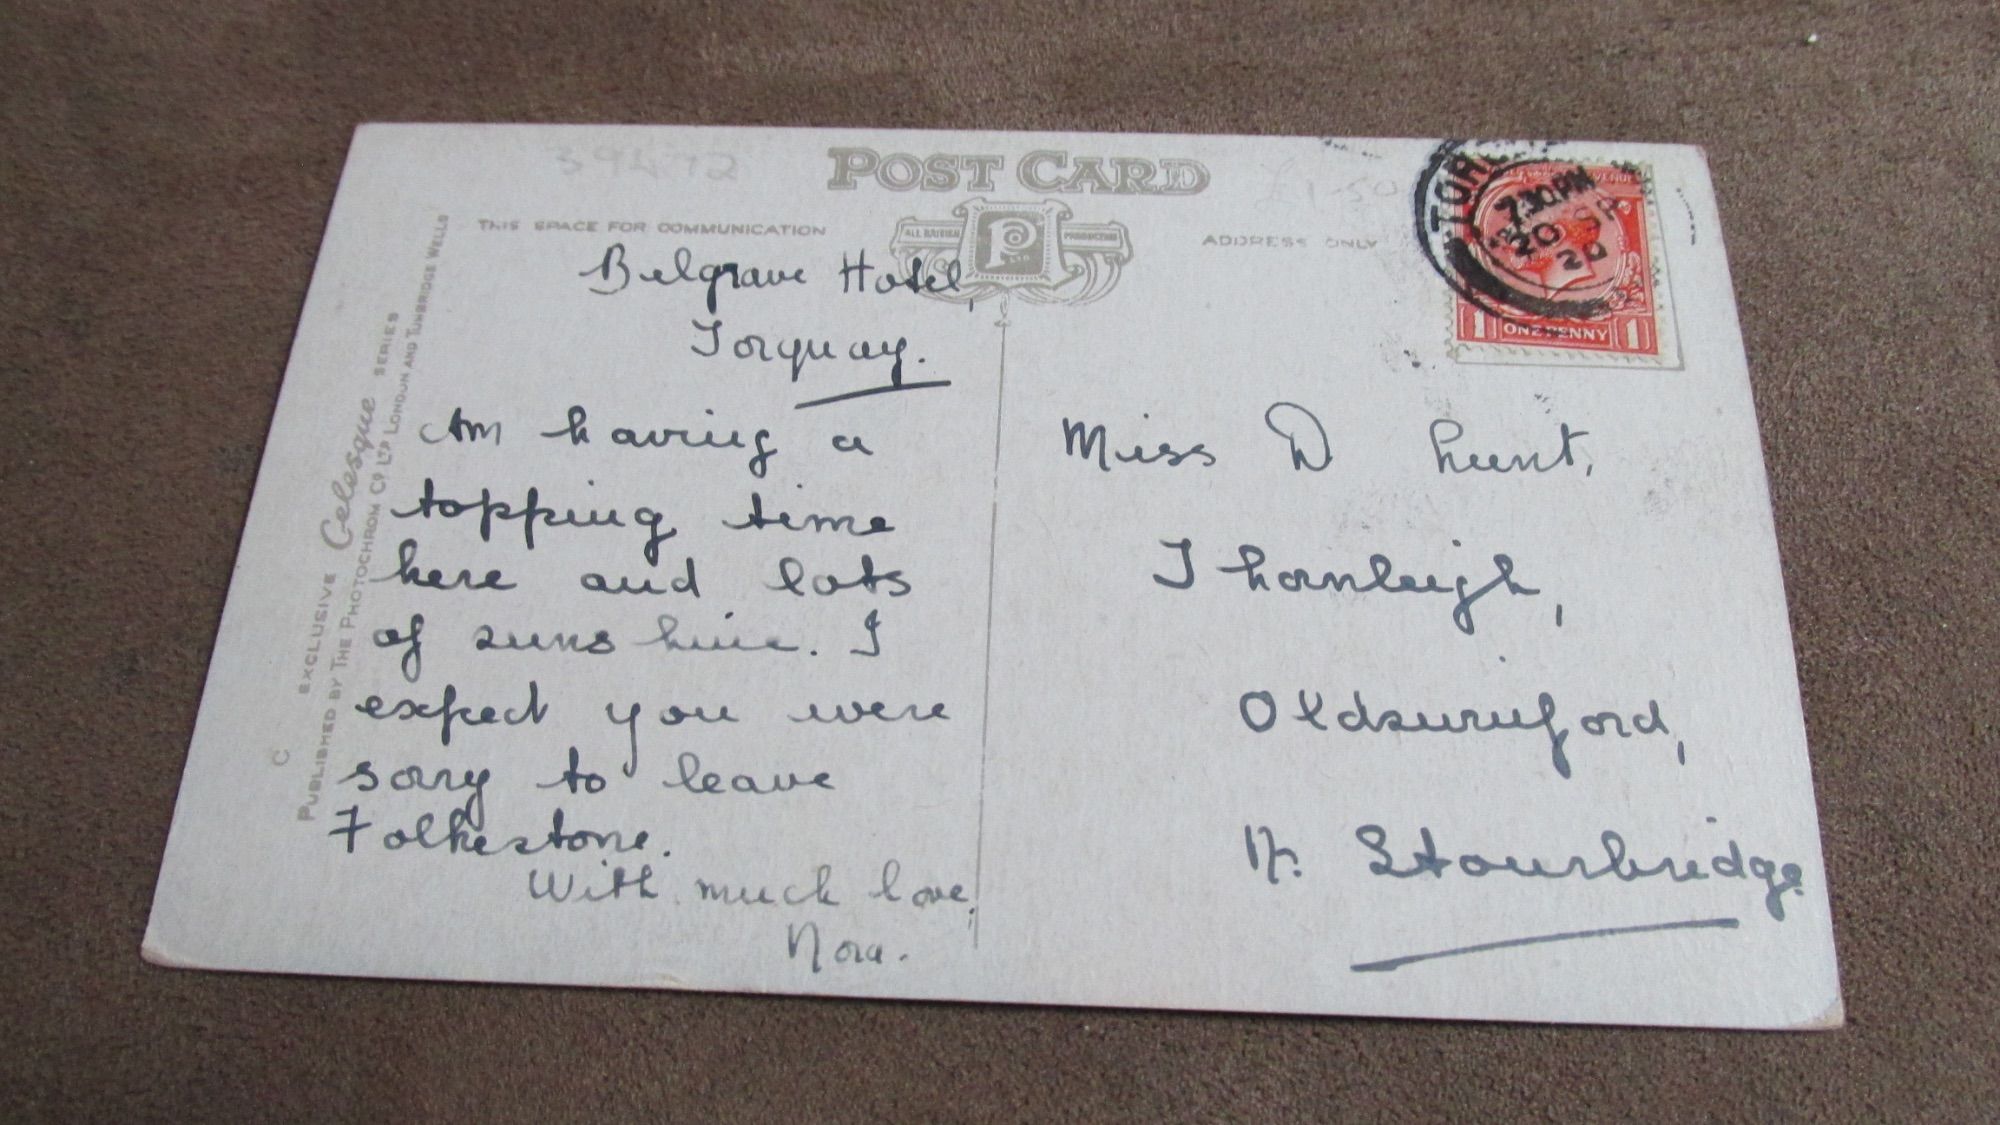 39472
POST CARD
£1.50
THIS SPACE FOR COMMUNICATION
ALL BRITISH
P
PRODUCTION
ADDRESS ONLY
7.30 PM
20 SP
20
ONE PENNY
1
1
Belgrave Hotel,
Torquay.
Am having a
topping time
here and lots
of sunshine. I
expect you were
sorry to leave
Folkestone.
With much love,
Nora.
Miss D Hunt,
Thornleigh,
Oldswinford,
Nr. Stourbridge.
C
EXCLUSIVE Celesque SERIES
PUBLISHED BY THE PHOTOCHROM CO. LTD. LONDON AND TUNBRIDGE WELLS